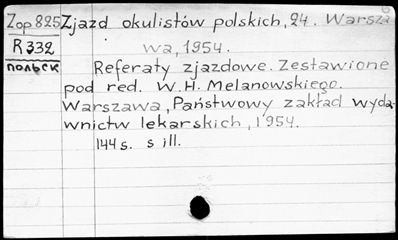 Zop 825 Zjazd okulistów polskich, 24. Warsza
R 332 wa, 1954.
польск Referaty zjazdowe. Zestawione
pod red. W.H. Melanowskiego.
Warszawa, Państwowy zakład wyda-
wnictw lekarskich, 1954.
144 s. s ill.